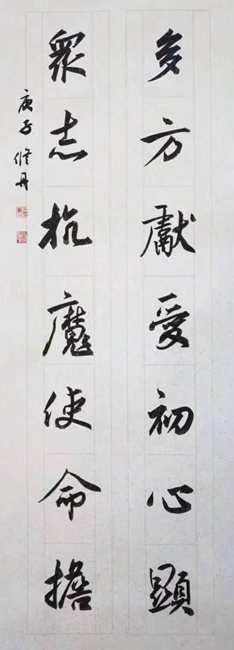 多方獻愛初心顯
眾志抗魔使命擔
庚子 修丹